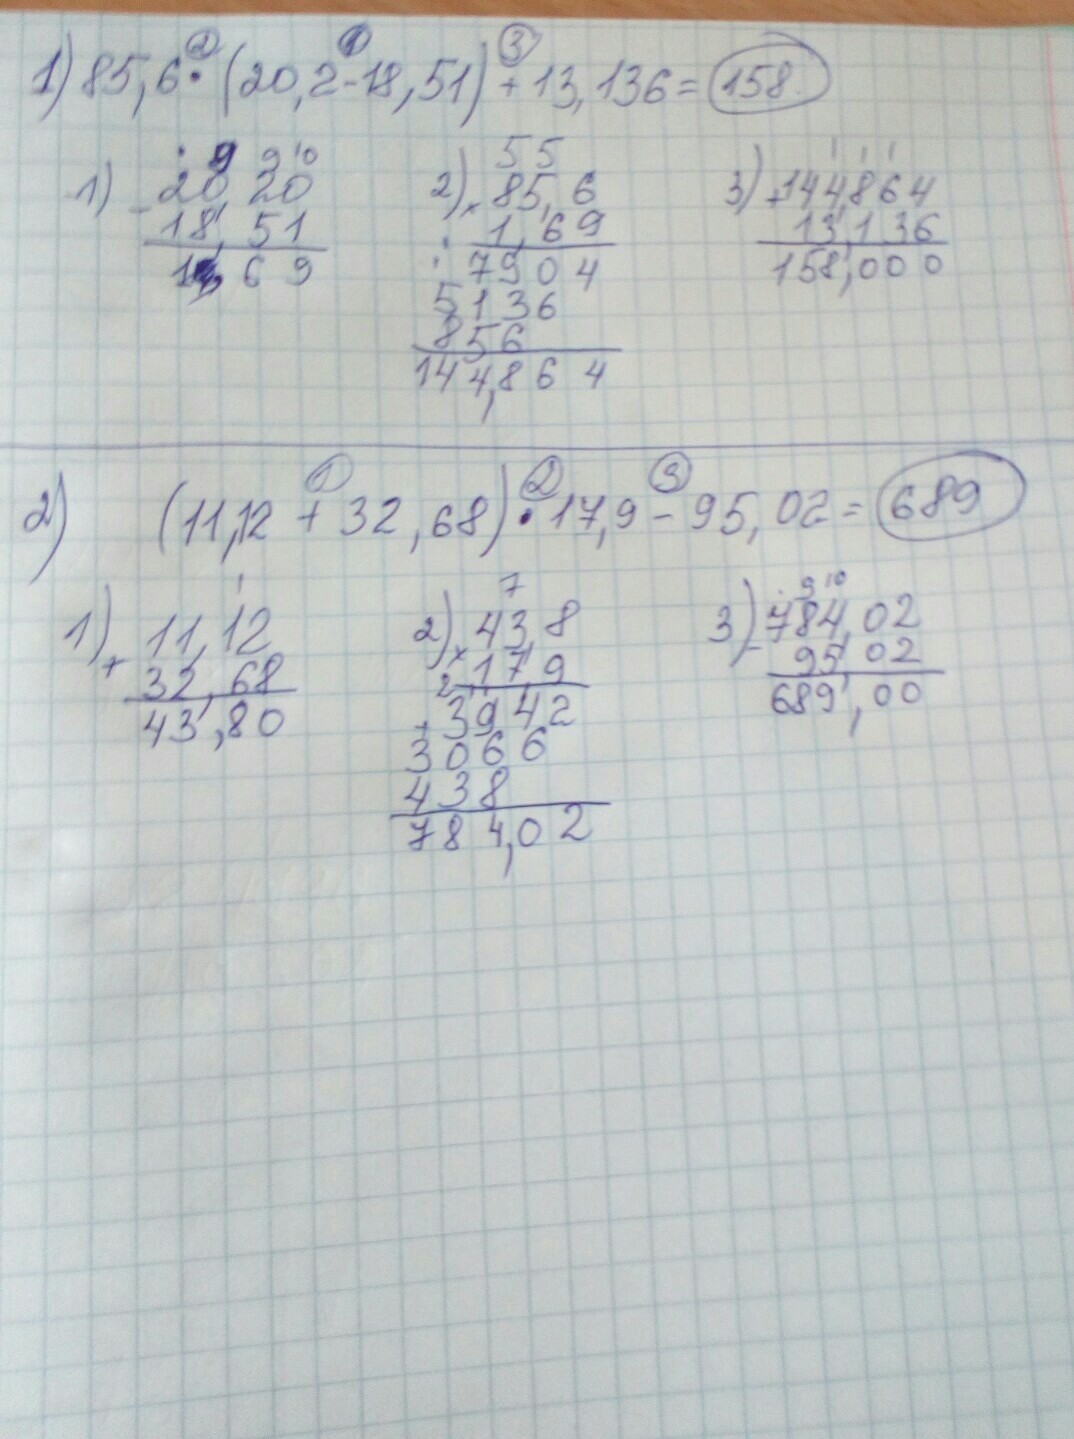 1) 85,6 · (20,2 - 18,51) + 13,136 = 158.
② ① ③
1) 20,20
- 18,51
1,69
9 9 10
2) 85,6
× 1,69
7704
5136
856
144,864
5 5
3) + 144,864
13,136
158,000
2) (11,12 + 32,68) · 17,9 - 95,02 = 689
① ② ③
1) 11,12
+ 32,68
43,80
1
2) 43,8
× 17,9
3942
+ 3066
438
784,02
7
2
3) - 784,02
95,02
689,00
9 10